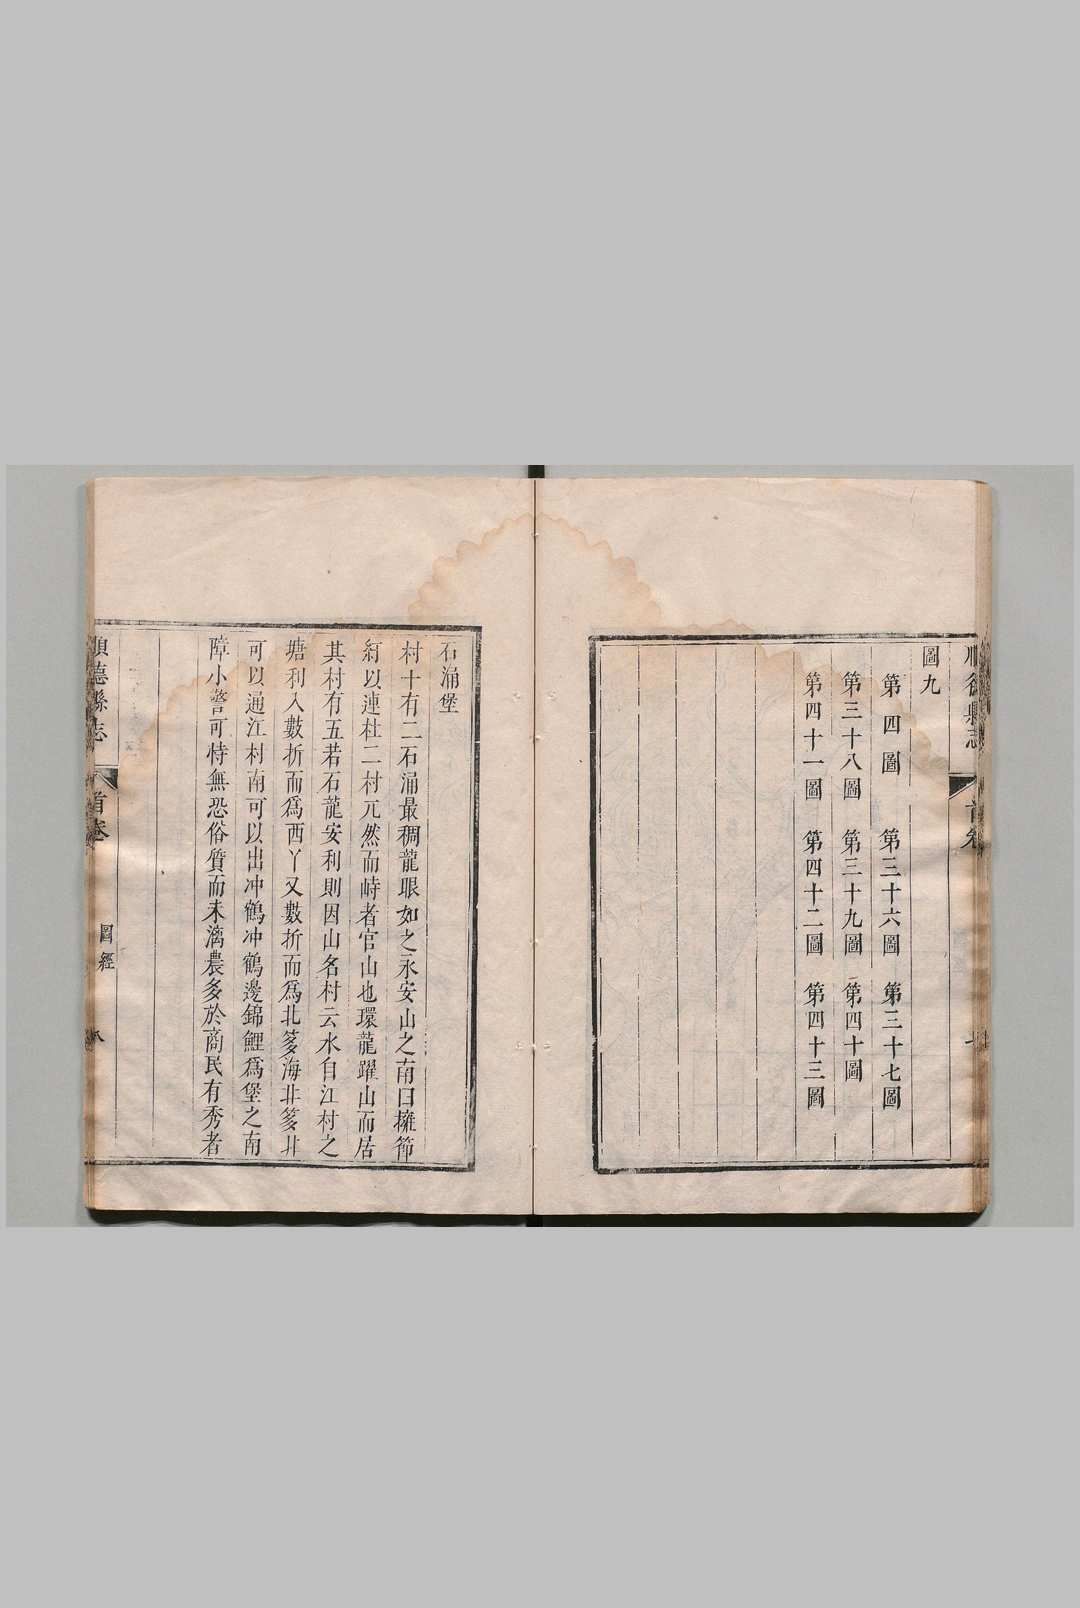 圖九
第四圖　第三十六圖　第三十七圖
第三十八圖　第三十九圖　第四十圖
第四十一圖　第四十二圖　第四十三圖
石涌堡
村十有二石涌最稠龍眼如之永安山之南曰擁節
綱以連杜二村兀然而峙者官山也環龍躍山而居
其村有五若石龍安利則因山名村云水自江村之
塘利入數折而爲西丫又數折而爲北篸海北篸北
可以通江村南可以出冲鶴冲鶴邊錦鯉爲堡之南
障小警可恃無恐俗質而未漓農多於商民有秀者
順德縣志
首卷
圖經
八